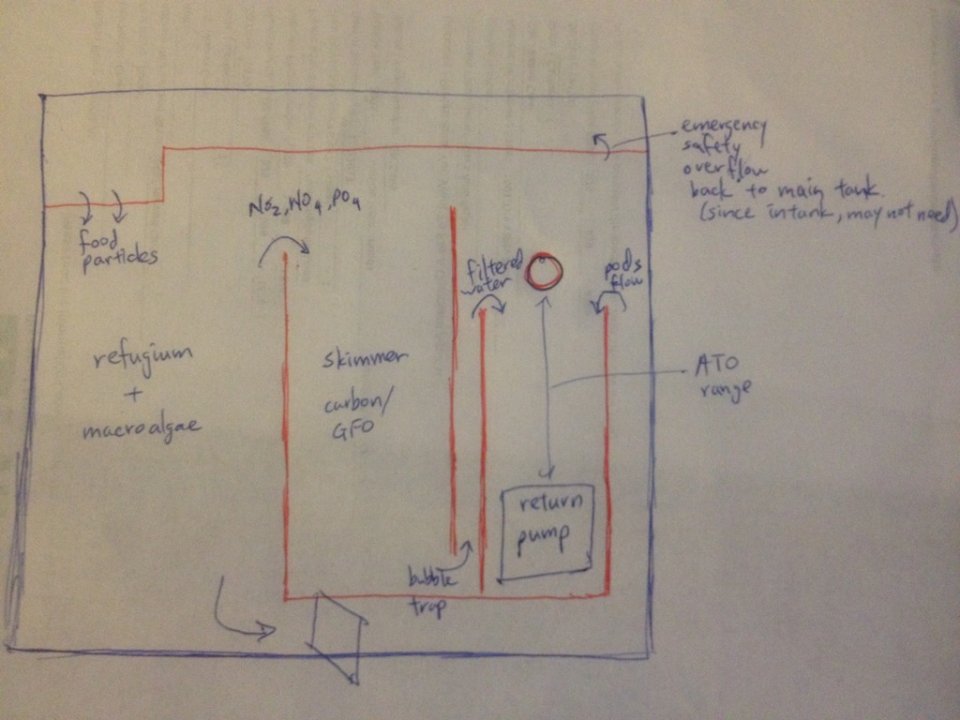 emergency
safety
overflow
back to main tank.
(since intank, may not need)
No2, NO4, PO4
food
particles
filtered
water
pods
flow
refugium
+
macroalgae
skimmer
carbon/
GFO
ATO
range
return
pump
bubble
trap